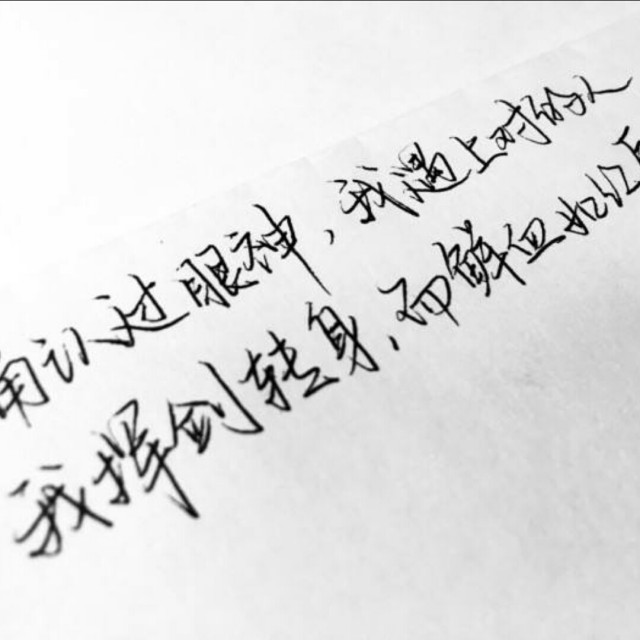 确认过眼神，我遇上对的人
我挥剑转身，而鲜血如红唇